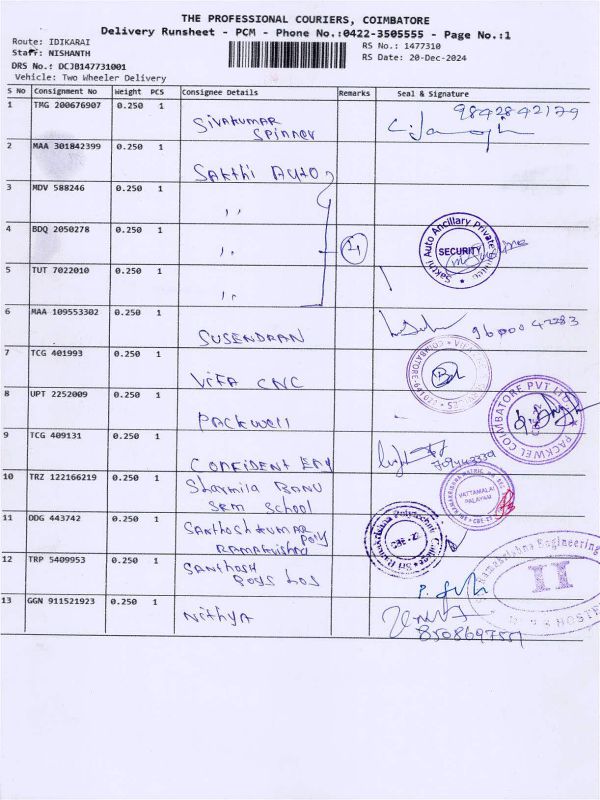 THE PROFESSIONAL COURIERS, COIMBATORE
Delivery Runsheet - PCM - Phone No.:0422-3505555 - Page No.:1
Route: IDIKARAI
Staff: NISHANTH
DRS No.: DCJB147731001
Vehicle: Two Wheeler Delivery
RS No.: 1477310
RS Date: 20-Dec-2024
S No Consignment No Weight PCS Consignee Details Remarks Seal & Signature
1 TMG 200676907 0.250 1 Sivakumar 9842842179
Spinner
2 MAA 301842399 0.250 1 Sakthi Auto
3 MDV 588246 0.250 1 ,,
4 BDQ 2050278 0.250 1 ,,
Sakthi Auto Ancillary Private Limited
SECURITY
5 TUT 7022010 0.250 1 ,,
6 MAA 109553302 0.250 1 SUSENDRAN
7 TCG 401993 0.250 1 ViFA CNC
8 UPT 2252009 0.250 1 Packwell
PACKWEL COIMBATORE PVT LTD
9 TCG 409131 0.250 1 CONFIDENT
10 TRZ 122166219 0.250 1 Sharmila BANU
SRM School
VATTAMALAI
PALAYAM
11 DDG 443742 0.250 1 Santhosh kumar
Poly
Sri Ramakrishna Polytechnic College
CBE-22
12 TRP 5409953 0.250 1 Santhosh
Boys
Ramakrishna Engineering
II
HOSTEL
13 GGN 911521923 0.250 1 Nithya